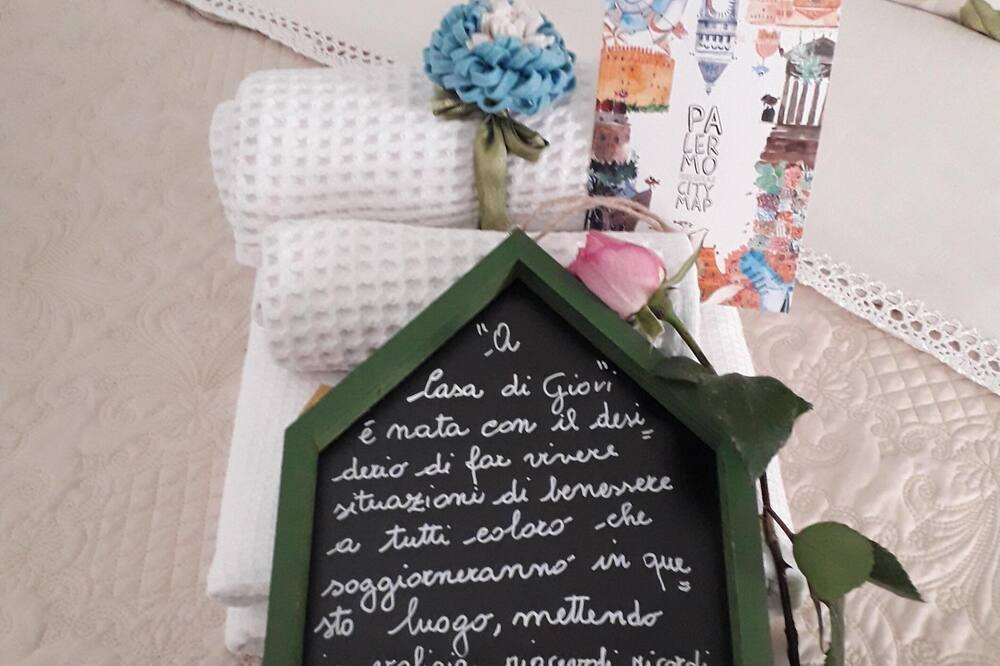 PA
LER
MO
CITY
MAP
"A
Casa di Giovi"
é nata con il desi=
derio di far vivere
situazioni di benessere
a tutti coloro che
soggiorneranno in que=
sto luogo, mettendo
in valigia piacevoli ricordi